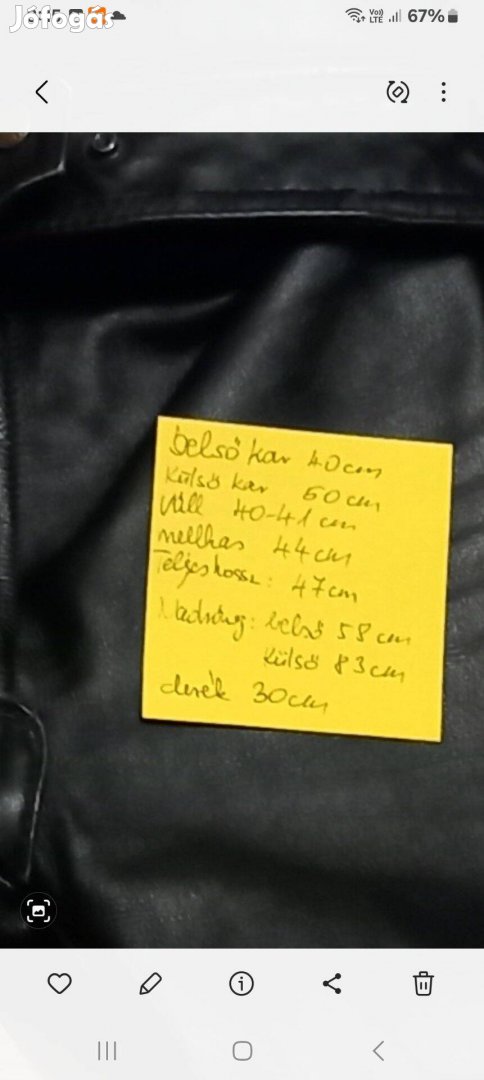 Jófogás
67%
belső kar 40cm
Külső kar 60cm
Váll 40-41cm
mellkas 44cm
Teljes hossz: 47cm
Nadrág: belső 58cm
Külső 83cm
derék 30cm